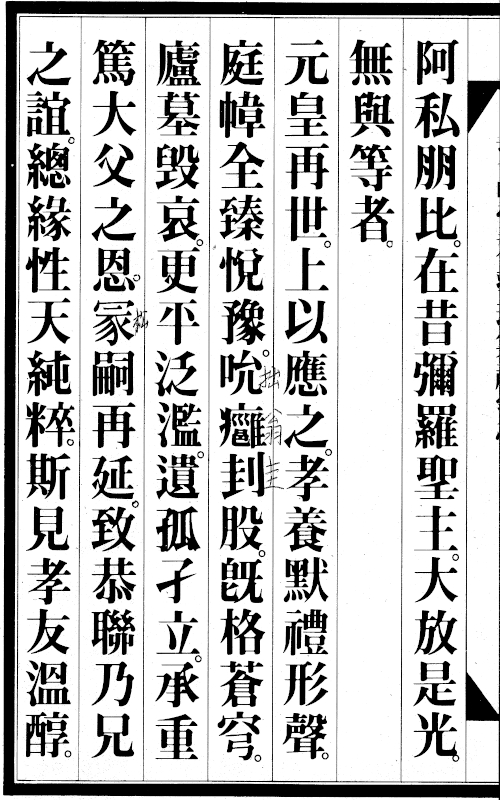 阿私朋比。在昔彌羅聖主。大放是光。
無與等者。
元皇再世。上以應之。孝養默禮形聲。
庭幃全臻悅豫。吮癰刲股。既格蒼穹。
廬墓毀哀。更平泛濫。遺孤孑立。承重
篤大父之恩。冢嗣再延。致恭聯乃兄
之誼。總緣性天純粹。斯見孝友溫醇。